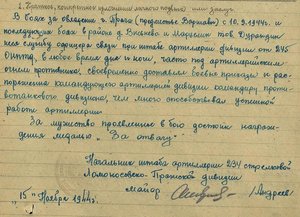 2. Краткое, конкретное изложение личного подвига или заслуг.
В боях за овладение г. Прага (предместье Варшавы) с 10.9.1944г. и
последующих боях в районе д. и т.
нес службу офицера связи при штабе артиллерии дивизии от 245
в любое время дня и ночи, часто под артиллерийским
огнем противника, своевременно доставлял боевые приказы и рас-
поряжения командующего артиллерией дивизии командиру проти-
вотанкового дивизиона, чем много способствовал успешной
работе артиллерии.
За мужество проявленное в бою достоин награж-
дения медалью "За отвагу".
Начальник штаба артиллерии 234 стрелковой
Ломоносовско-Пражской дивизии
майор /Андреев/
"15" Ноября 1944г.